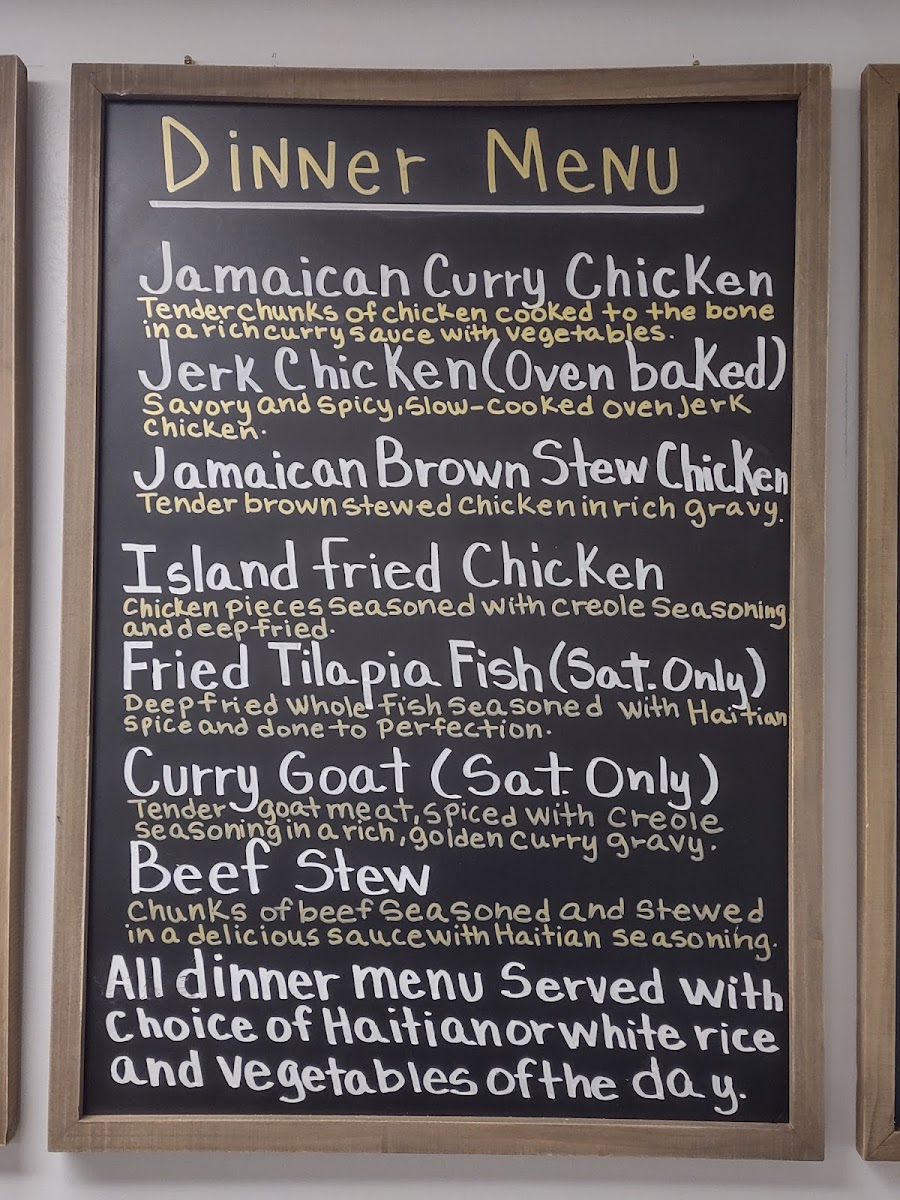 Dinner Menu
Jamaican Curry Chicken
Tender chunks of chicken cooked to the bone
in a rich curry sauce with vegetables.
Jerk Chicken (Oven baked)
Savory and spicy, slow-cooked oven Jerk
chicken.
Jamaican Brown Stew Chicken
Tender brown stewed chicken in rich gravy.
Island fried Chicken
Chicken pieces seasoned with creole seasoning
and deep-fried.
Fried Tilapia Fish (Sat. Only)
Deep fried whole fish seasoned with Haitian
spice and done to perfection.
Curry Goat (Sat. Only)
Tender goat meat, spiced with creole
seasoning in a rich, golden curry gravy.
Beef Stew
Chunks of beef seasoned and stewed
in a delicious sauce with Haitian seasoning.
All dinner menu Served with
choice of Haitian or white rice
and vegetables of the day.